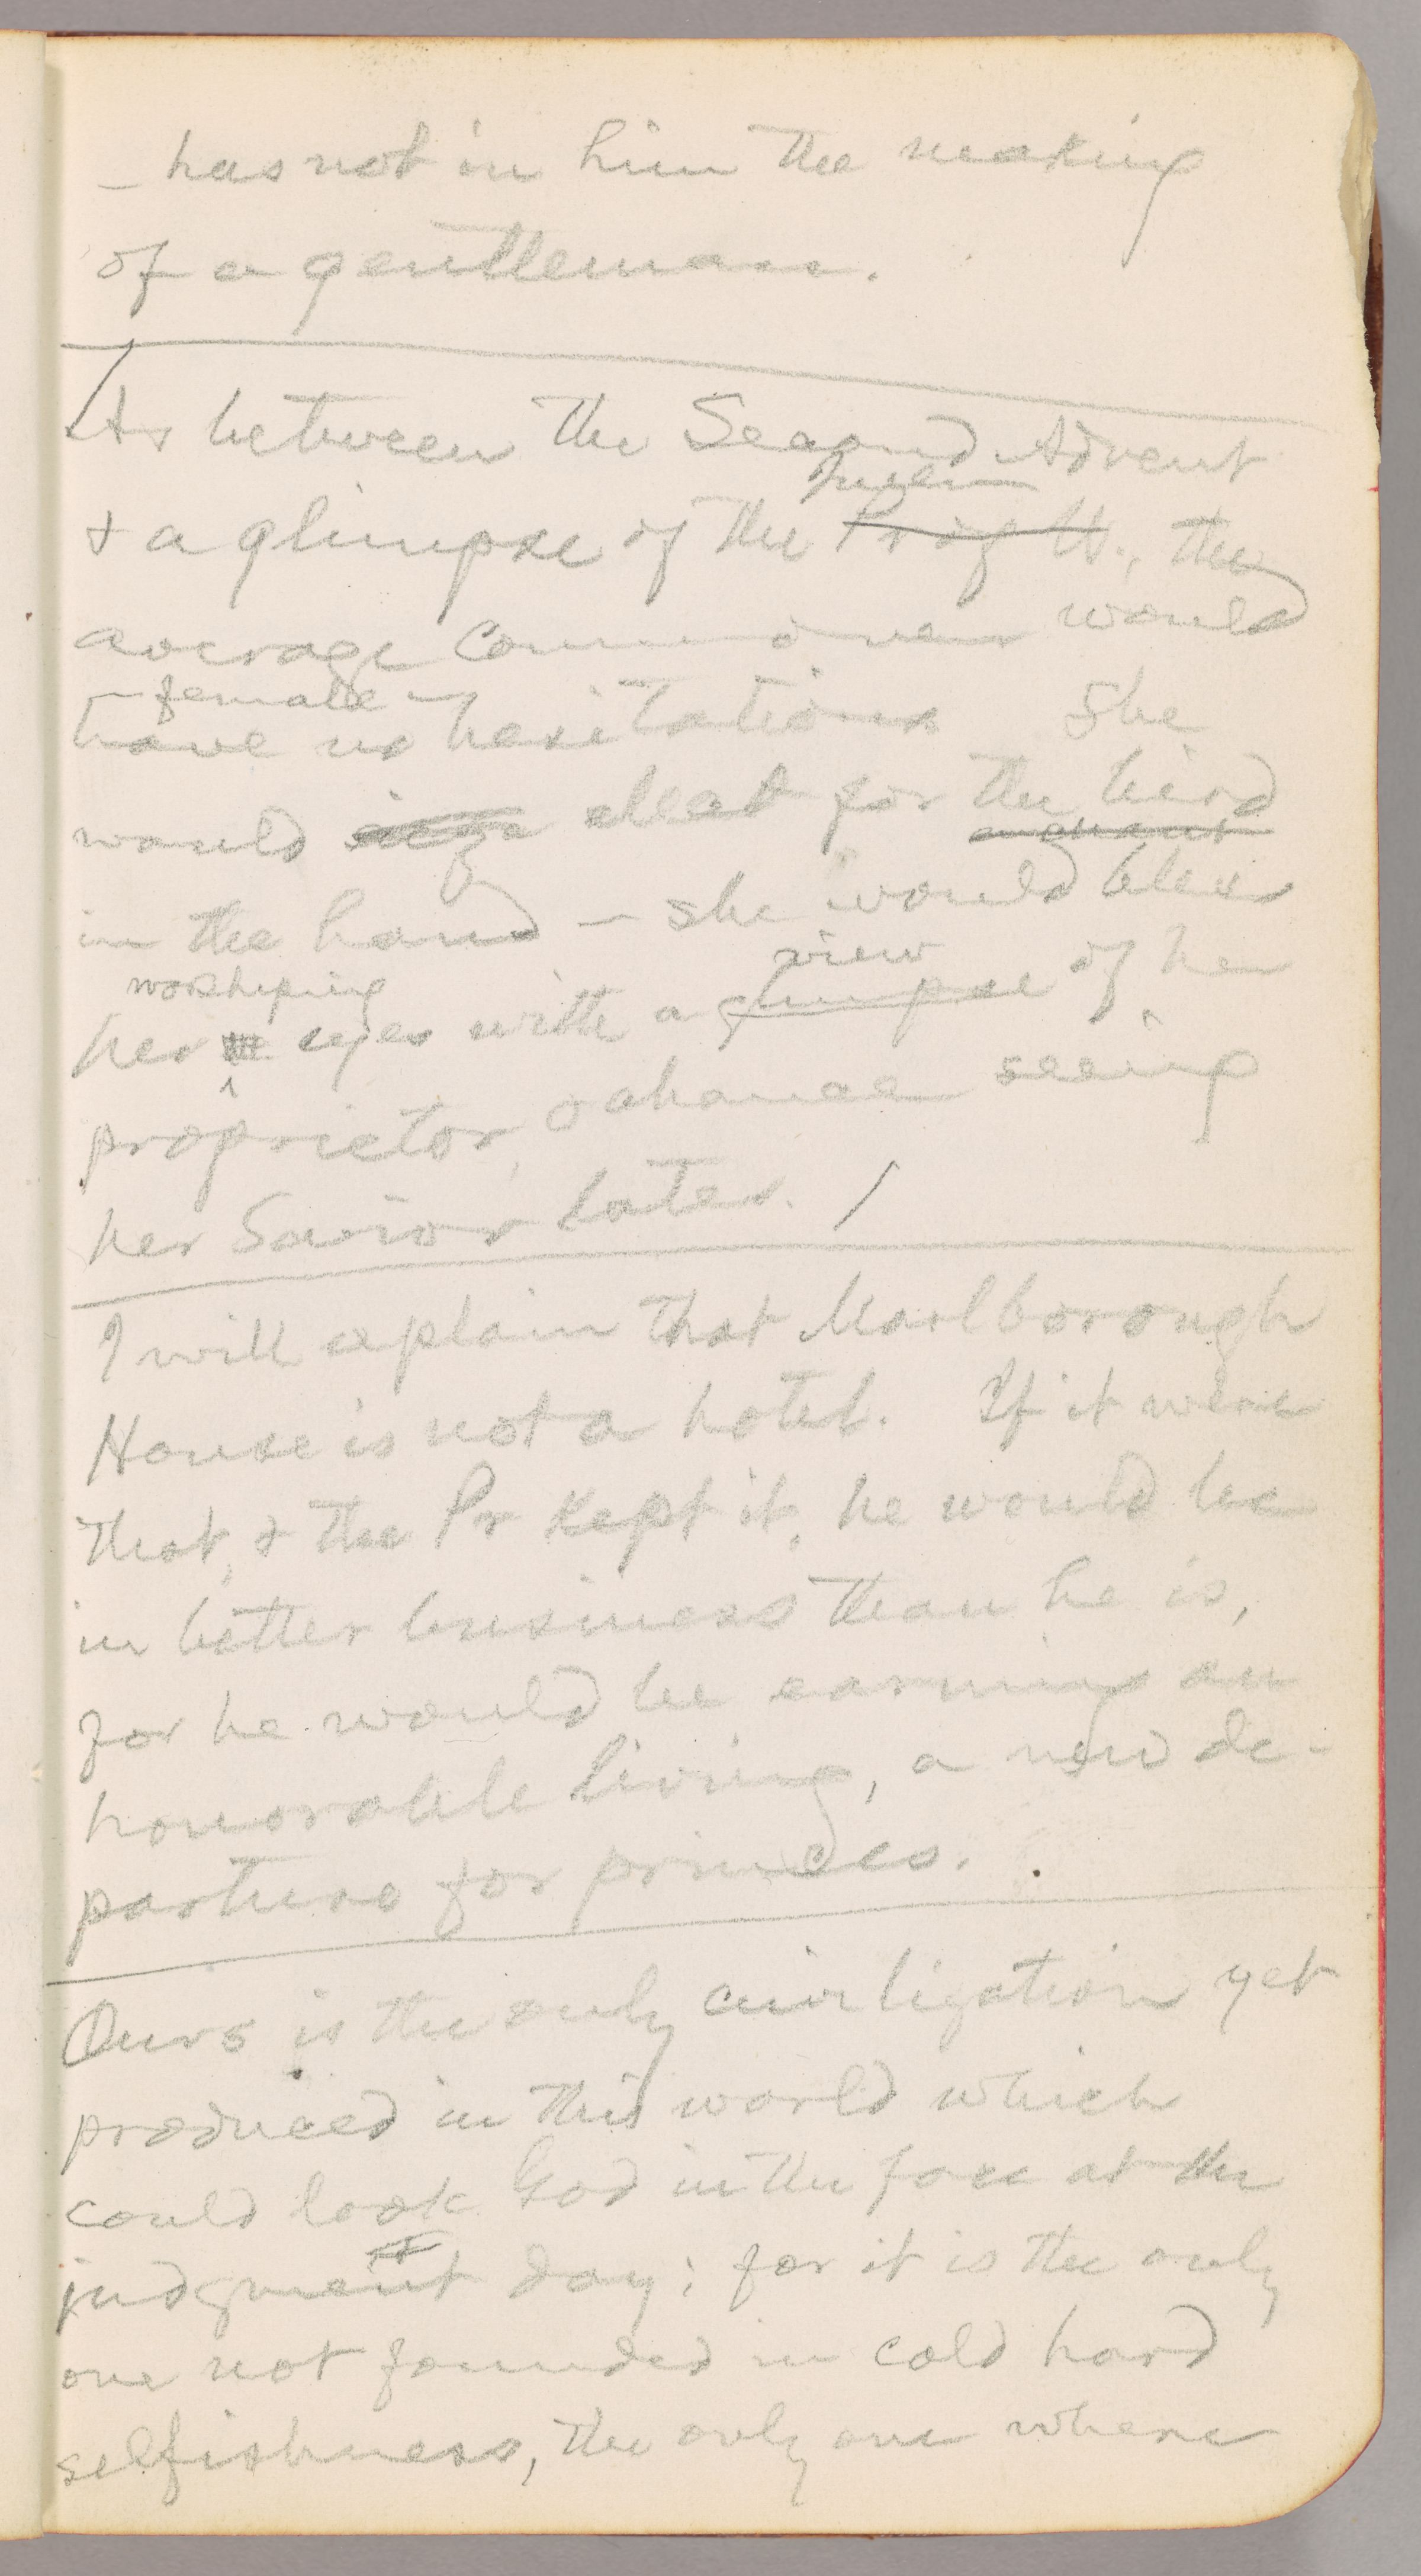 — has not in him the making
of a gentleman.
As between the Second Advent
Queen
& a glimpse of the Pr of W., the
average Commoner would
— female —
have no hesitations She
would elect for the bird
in the hand — she would bless
worshiping view
her eyes with a glimpse of her
proprietor, & chance seeing
her Savior later. /
I will explain that Marlborough
House is not a hotel. If it were
that, & the Pr kept it, he would be
in better business than he is,
for he would be earning an
honorable living, a new de-
parture for princes.
Ours is the only civilization yet
produced in this world which
could look God in the face at the
judgment day; for it is the only
one not founded in cold hard
selfishness, the only one where